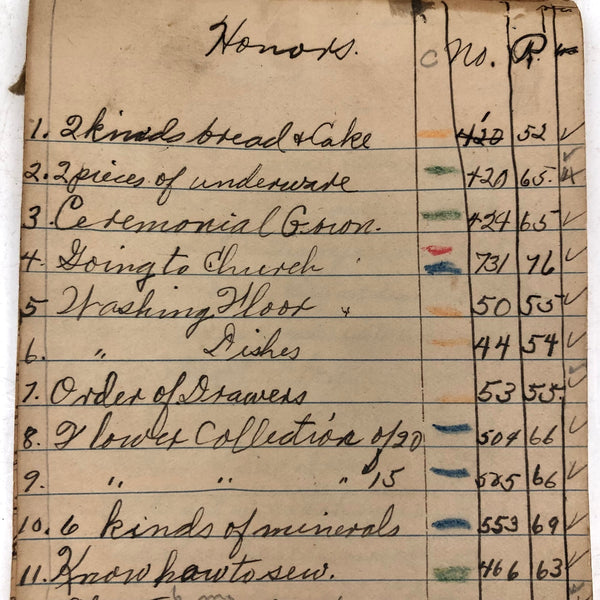 Honors. C No. P.
1. 2 kinds bread & Cake 420 52 ✓
2. 2 pieces of underware 420 65.
3. Ceremonial Gown. 424 65 ✓
4. Going to Church 731 76 ✓
5 Washing Floor 50 55 ✓
6. " Dishes 44 54 ✓
7. Order of Drawers 53 55.
8. Flower Collection of 20 504 66 ✓
9. " " " 15 505 66 ✓
10. 6 kinds of minerals 553 69 ✓
11. Know how to sew. 466 63 ✓